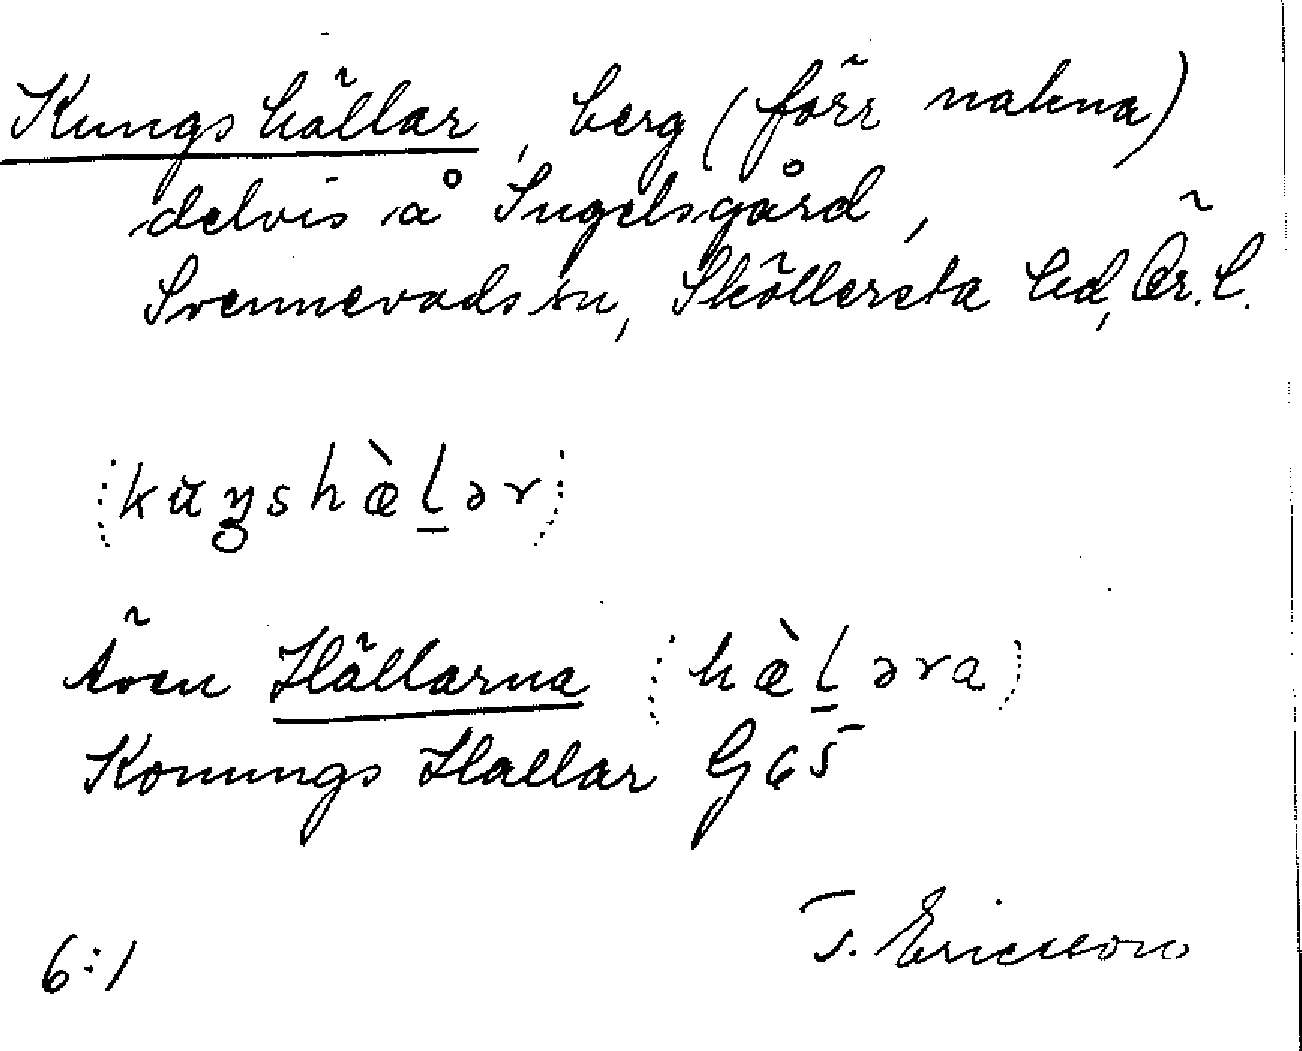 Kungshällar, berg (förr nakna)
delvis å Ingelsgård,
Svennevads sn, Sköllersta hd, Ör. l.
(kuŋshæ̀l̲ər)
Även Hällarna (hæ̀l̲əra)
Konungs Hallar G65
T. Ericsson
6:1